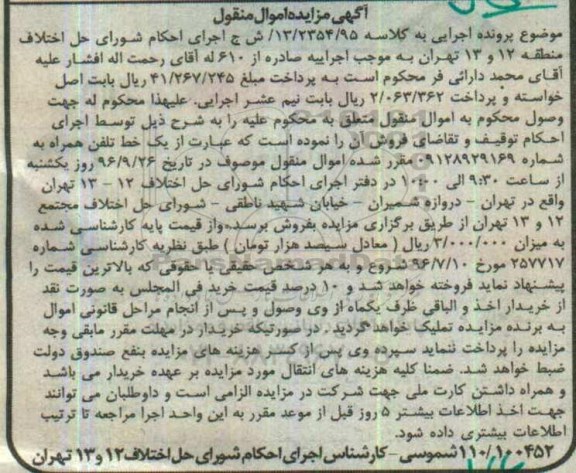 آگهی مزایده اموال منقول
موضوع پرونده اجرایی به کلاسه ۱۳/۲۳۵۴/۹۵/ ش ج اجرای احکام شورای حل اختلاف
منطقه ۱۲ و ۱۳ تهران به موجب اجراییه صادره از ۶۱۰ له آقای رحمت اله افشار علیه
آقای محمد دارائی فر محکوم است به پرداخت مبلغ ۴۱/۲۶۷/۲۴۵ ریال بابت اصل
خواسته و پرداخت ۲/۰۶۳/۳۶۲ ریال بابت نیم عشر اجرایی. علیهذا محکوم له جهت
وصول محکوم به اموال منقول متعلق به محکوم علیه را به شرح ذیل توسط اجرای
احکام توقیف و تقاضای فروش آن را نموده است که عبارت از یک خط تلفن همراه به
شماره ۰۹۱۲۸۹۲۹۱۶۹ مقرر شده اموال منقول موصوف در تاریخ ۹۶/۹/۲۶ روز یکشنبه
از ساعت ۹:۳۰ الی ۱۰:۰۰ در دفتر اجرای احکام شورای حل اختلاف ۱۲ - ۱۳ تهران
واقع در تهران - دروازه شمیران - خیابان شهید ناطقی - شورای حل اختلاف مجتمع
۱۲ و ۱۳ تهران از طریق برگزاری مزایده بفروش برسد. واز قیمت پایه کارشناسی شده
به میزان ۳/۰۰۰/۰۰۰ ریال ( معادل سیصد هزار تومان ) طبق نظریه کارشناسی شماره
۲۵۷۷۱۷ مورخ ۹۶/۷/۱۰ شروع و به هر شخص حقیقی یا حقوقی که بالاترین قیمت را
پیشنهاد نماید فروخته خواهد شد و ۱۰ درصد قیمت خرید فی المجلس به صورت نقد
از خریدار اخذ و الباقی ظرف یکماه از وی وصول و پس از انجام مراحل قانونی اموال
به برنده مزایده تملیک خواهد گردید . در صورتیکه خریدار در مهلت مقرر مابقی وجه
مزایده را پرداخت ننماید سپرده وی پس از کسر هزینه های مزایده بنفع صندوق دولت
ضبط خواهد شد. ضمنا کلیه هزینه های انتقال مورد مزایده بر عهده خریدار می باشد
و همراه داشتن کارت ملی جهت شرکت در مزایده الزامی است و داوطلبان می توانند
جهت اخذ اطلاعات بیشتر ۵ روز قبل از موعد مقرر به این واحد اجرا مراجعه تا ترتیب
اطلاعات بیشتری داده شود.
۱۱۰/۱۰۰۴۵۲ شموسی - کارشناس اجرای احکام شورای حل اختلاف ۱۲ و ۱۳ تهران